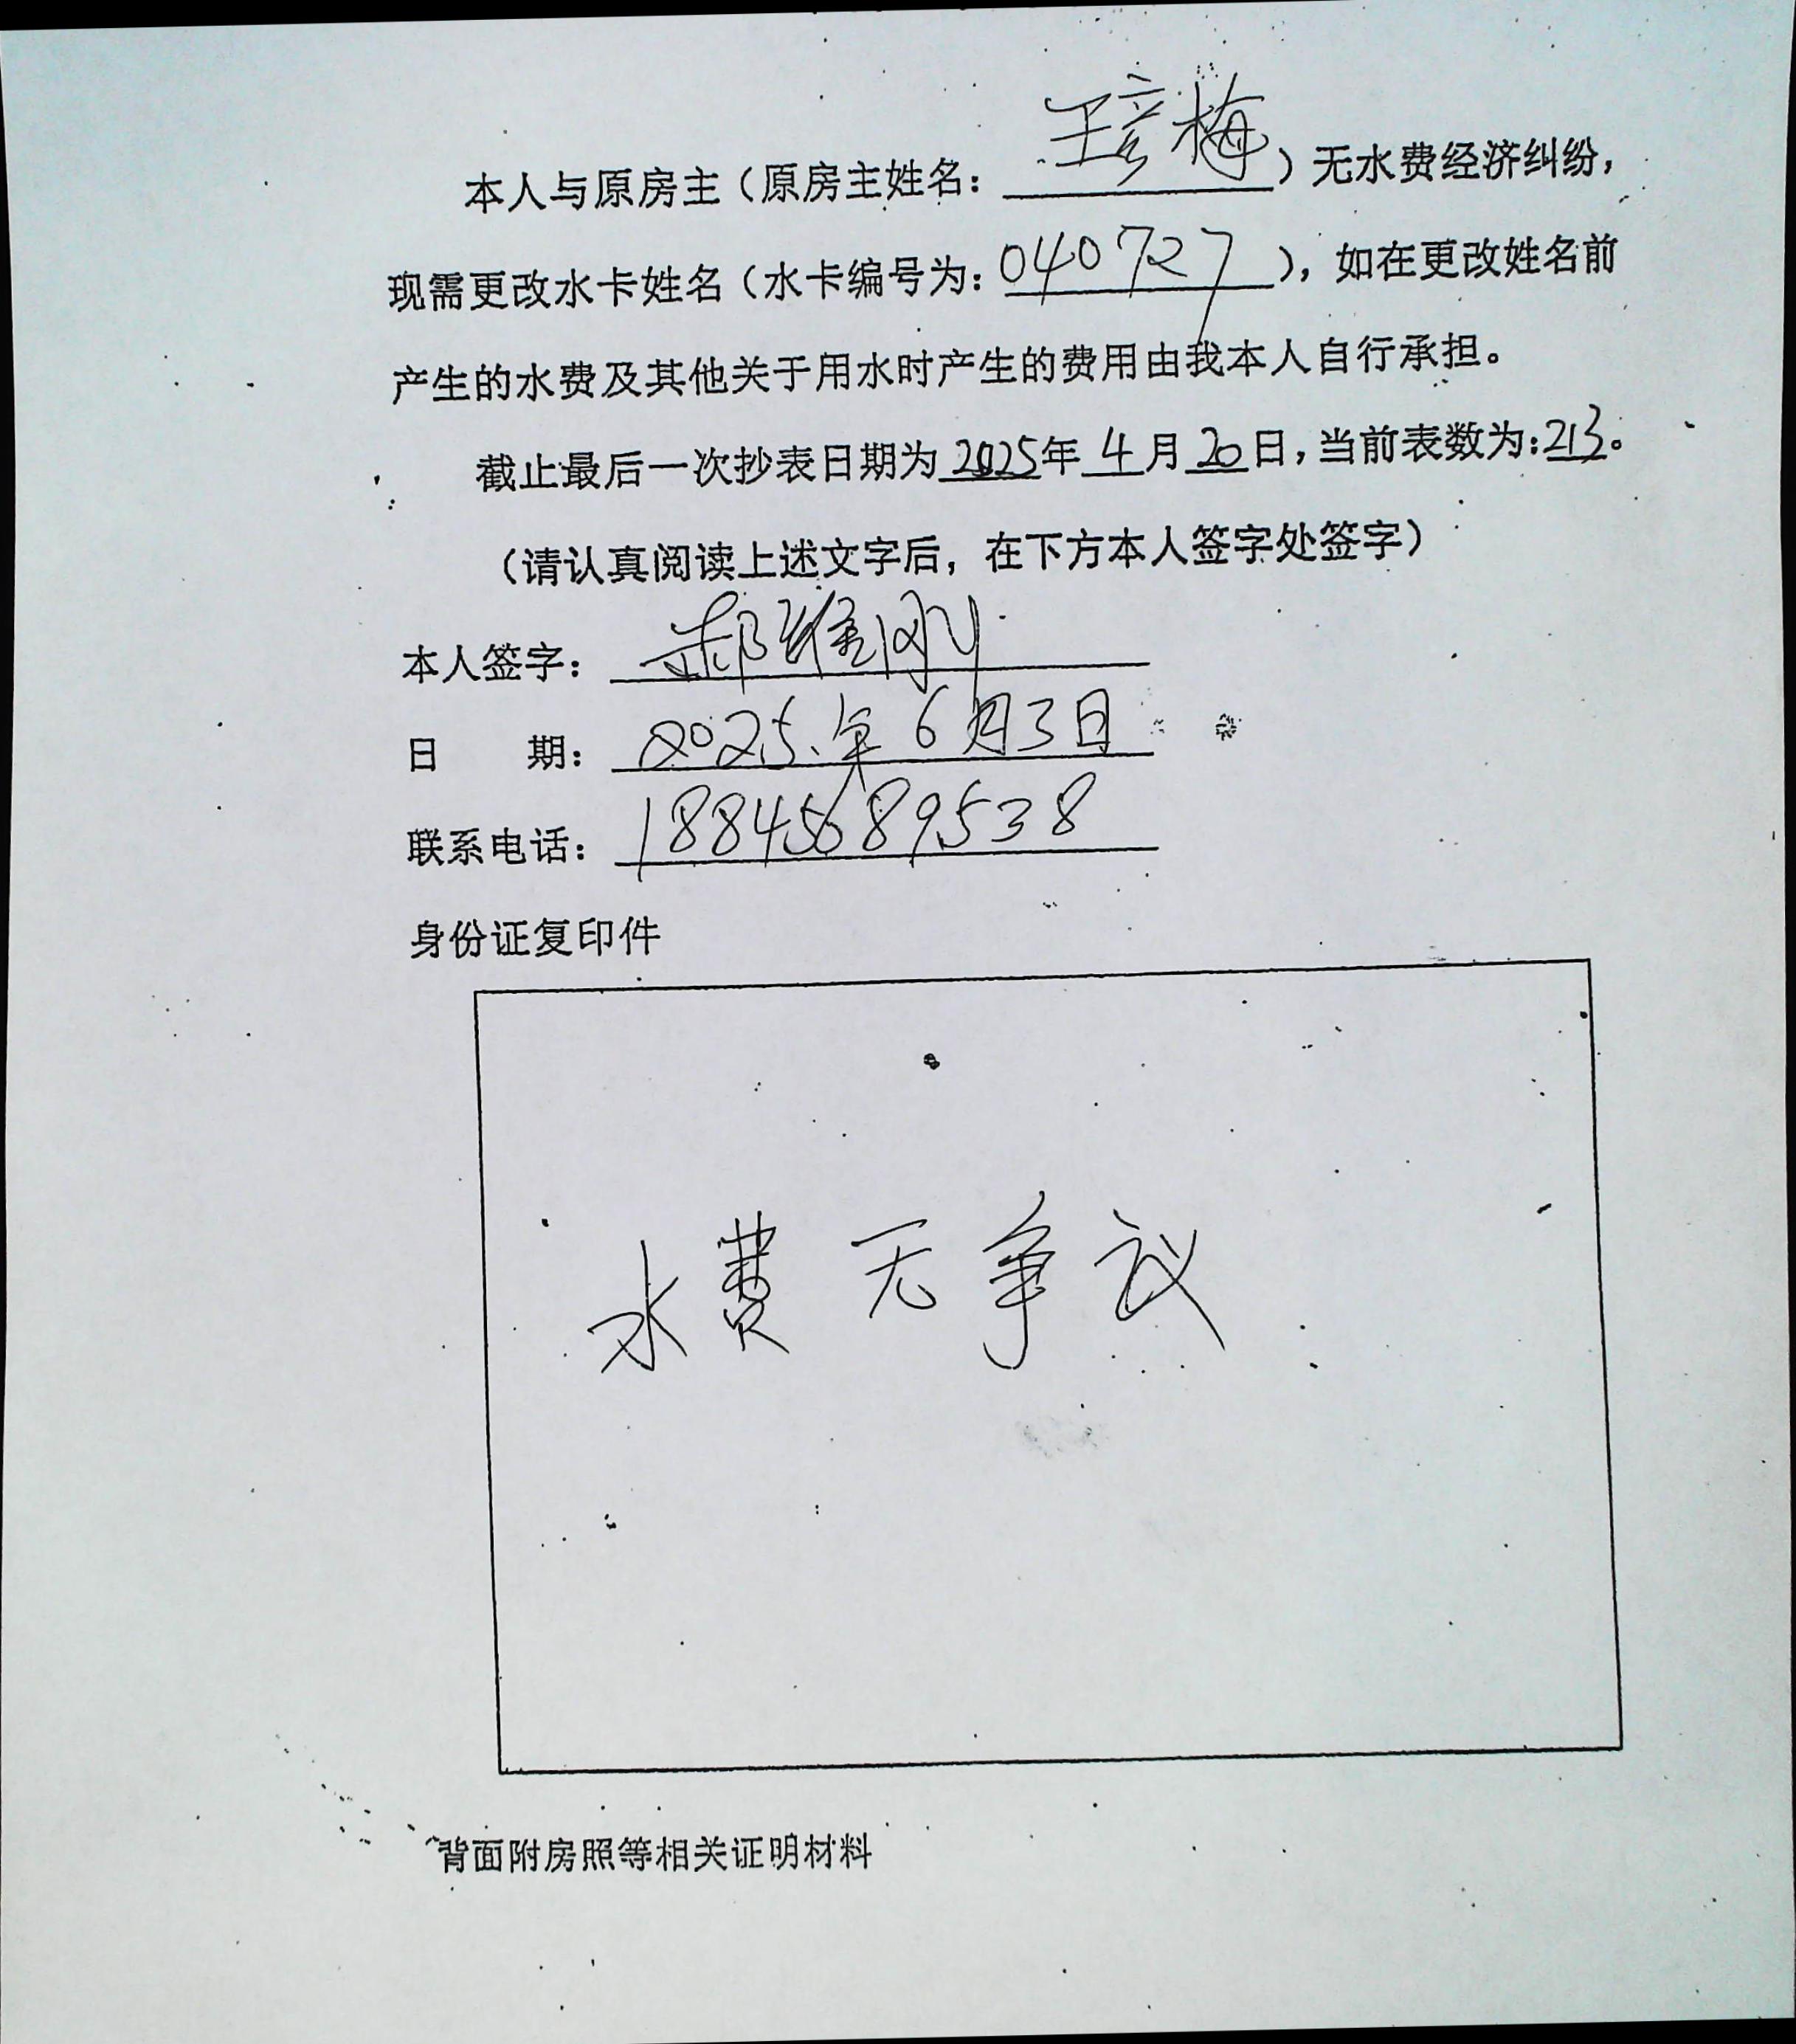 本人与原房主（原房主姓名：王彦梅）无水费经济纠纷，
现需更改水卡姓名（水卡编号为：040727），如在更改姓名前
产生的水费及其他关于用水时产生的费用由我本人自行承担。
截止最后一次抄表日期为2025年4月20日，当前表数为：213。
（请认真阅读上述文字后，在下方本人签字处签字）
本人签字：郝维刚
日 期：2025.年6月3日
联系电话：18845689538
身份证复印件
水费无争议
背面附房照等相关证明材料